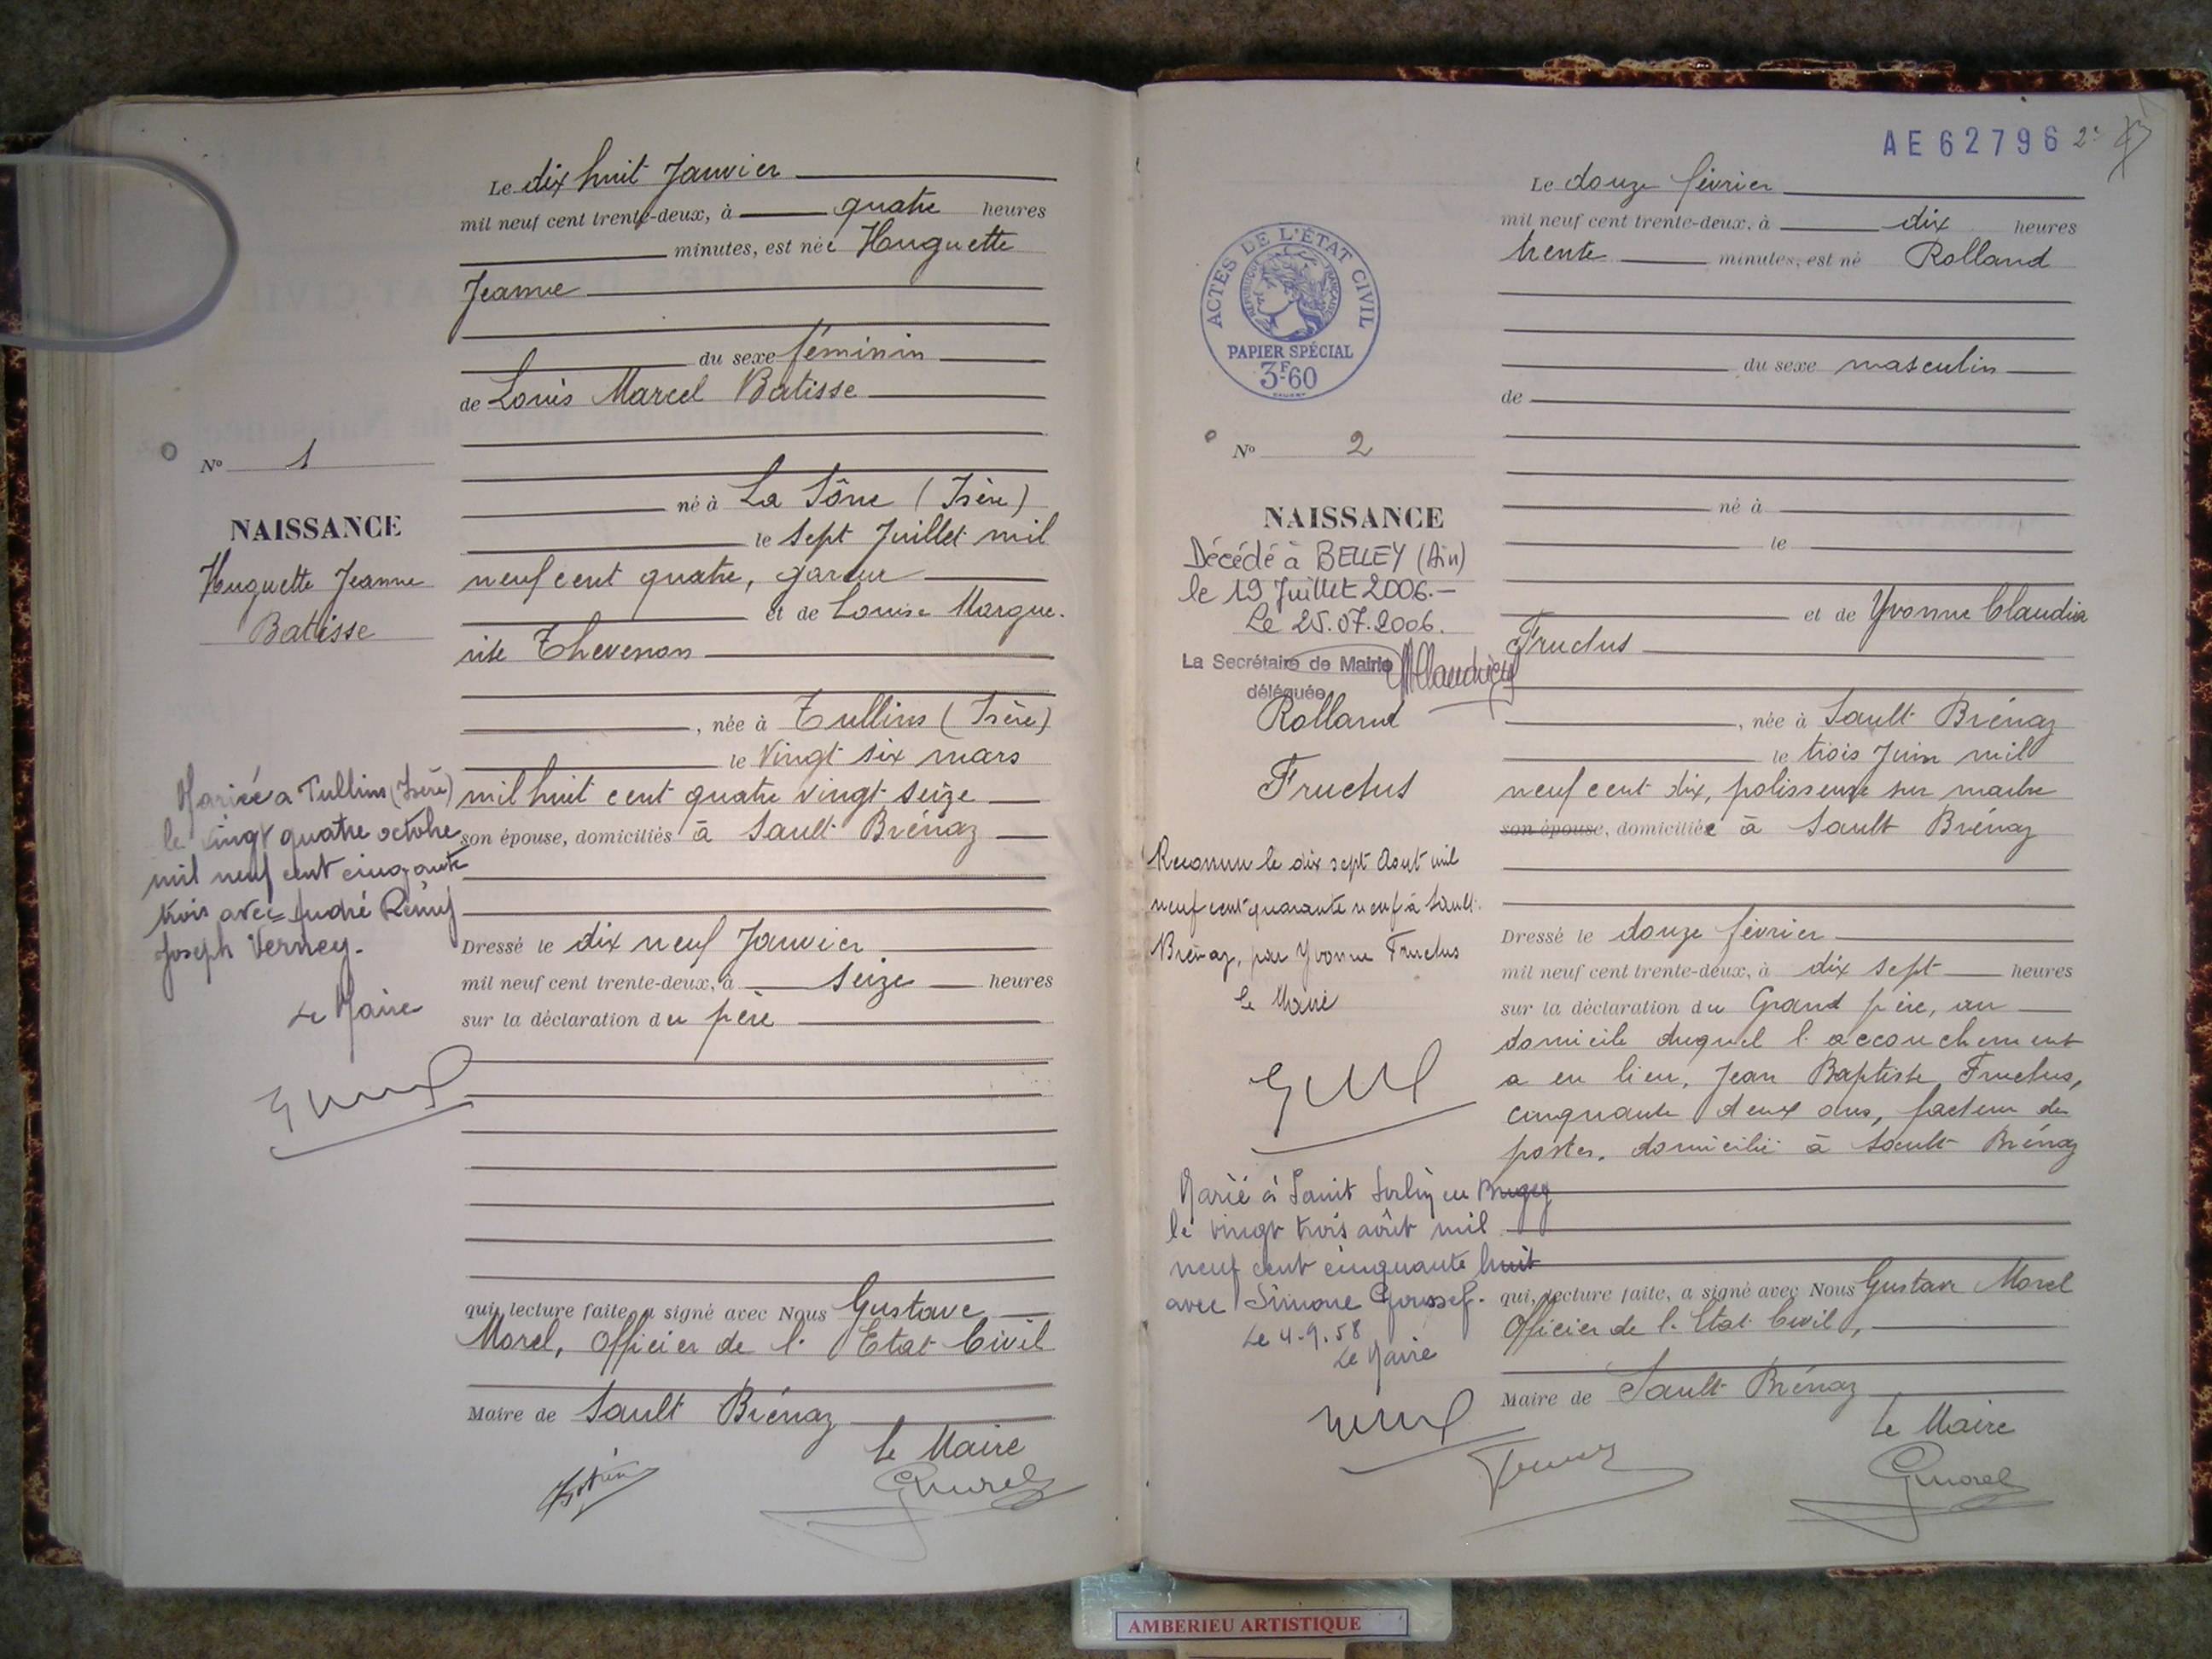 Le dix huit Janvier
mil neuf cent trente-deux, à quatre heures
minutes, est née Huguette
Jeanne
du sexe féminin
de Louis Marcel Batisse
né à La Sône (Isère)
le sept Juillet mil
neuf cent quatre,
et de Louise Margue-
rite Thevenon
, née à Tullins (Isère)
le Vingt six mars
mil huit cent quatre vingt seize
son épouse, domiciliés à Sault Brénaz
Dressé le dix neuf Janvier
mil neuf cent trente-deux, à seize heures
sur la déclaration du père
qui, lecture faite, a signé avec Nous Gustave
Morel, Officier de l'Etat Civil
Maire de Sault Brénaz
Le Maire
GMorel
No 1
NAISSANCE
Huguette Jeanne
Batisse
Mariée a Tullins (Isère)
le vingt quatre octobre
mil neuf cent cinquante
trois avec André Rémy
Joseph Verney.
Le Maire
AE62796
Le douze février
mil neuf cent trente-deux, à dix heures
trente minutes, est né Rolland
du sexe masculin
de
né à
le
et de Yvonne Claudia
Fructus
, née à Sault Brénaz
le trois Juin mil
neuf cent dix, polisseuse sur marbre
son épouse, domiciliée à Sault Brénaz
Dressé le douze février
mil neuf cent trente-deux, à dix sept heures
sur la déclaration du Grand père, au
domicile duquel l'accouchement
a eu lieu, Jean Baptiste Fructus,
cinquante deux ans, facteur des
postes, domicilié à Sault Brénaz
qui, lecture faite, a signé avec Nous Gustave Morel
Officier de l'Etat Civil,
Maire de Sault Brénaz
Le Maire
GMorel
ACTES DE L'ÉTAT CIVIL
RÉPUBLIQUE FRANÇAISE
PAPIER SPÉCIAL
3F60
No 2
NAISSANCE
Décédé à BELLEY (Ain)
le 19 Juillet 2006.-
Le 25.07.2006.
La Secrétaire de Mairie
déléguée
Rolland
Fructus
Reconnu le dix sept Aout mil
neuf cent quarante neuf à Sault-
Brénaz, par Yvonne Fructus
Le Maire
Marié à Saint Sorlin en Bugey
le vingt trois août mil
neuf cent cinquante huit
avec Simone
Le 4-9.58
Le Maire
AMBERIEU ARTISTIQUE